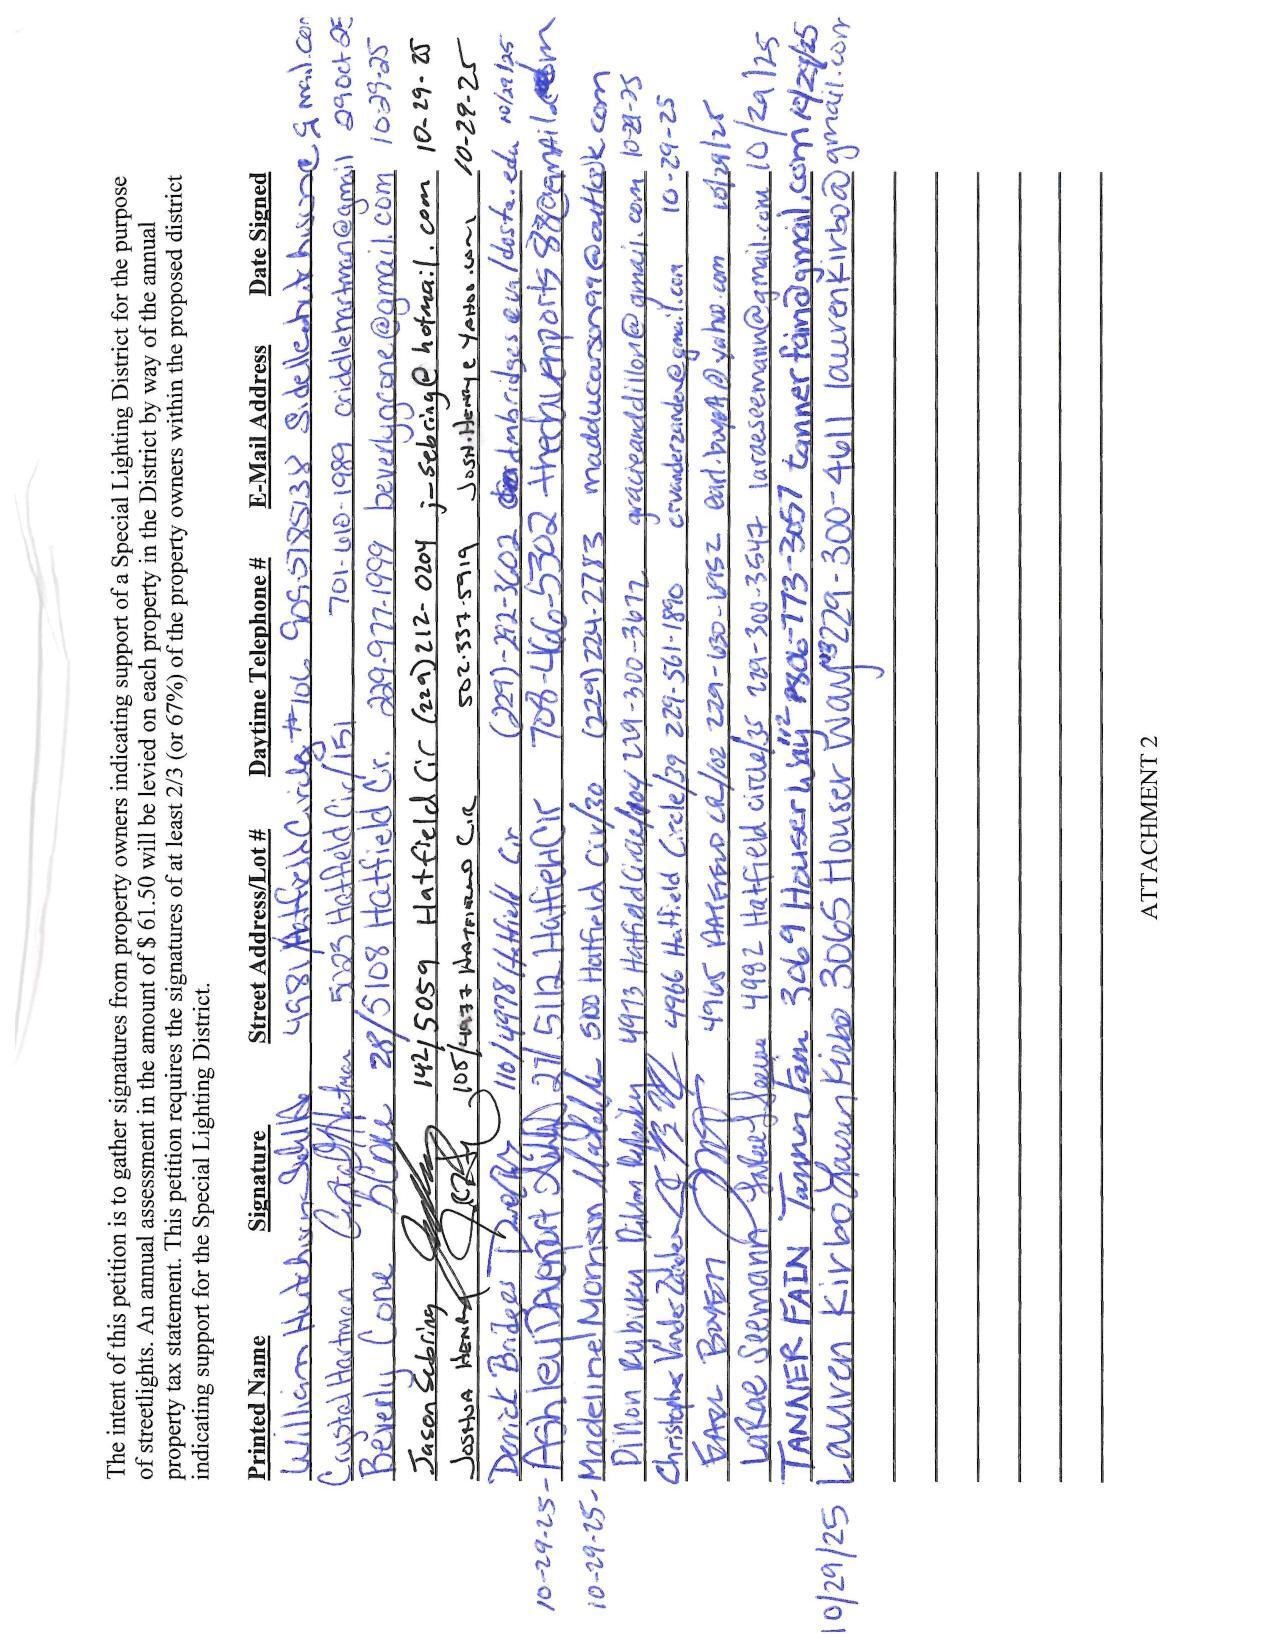 The intent of this petition is to gather signatures from property owners indicating support of a Special Lighting District for the purpose
of streetlights. An annual assessment in the amount of $ 61.50 will be levied on each property in the District by way of the annual
property tax statement. This petition requires the signatures of at least 2/3 (or 67%) of the property owners within the proposed district
indicating support for the Special Lighting District.
Printed Name Signature Street Address/Lot # Daytime Telephone # E-Mail Address Date Signed
William 4981 Hatfield Circle #106 9095785138 gmail.com
Crystal Hartman Crystal Hartman 5123 Hatfield Cir/151 701-610-1989 criddlehartman@gmail 29Oct25
Beverly Cone B Cone 28/5108 Hatfield Cir. 229-977-1999 beverlygcone@gmail.com 10-29-25
Jason Sebring 142/5059 Hatfield Cir (229)212-0204 j-sebring@hotmail.com 10-29-25
Joshua Henry 105/4977 Hatfield Cir 502.337.5919 Josh.Henry@Yahoo.com 10-29-25
Derrick Bridges 110/4978 Hatfield Cir (229)-292-3602 10/29/25
10-29-25- Ashley Davenport 27/5112 Hatfield Cir 708-466-5302
10-29-25- Madeline Morrison 5100 Hatfield Cir/30 (229)224-2783 madducarson99@outlook.com
Dillon Rubicky Dillon Rubicky 4973 Hatfield Circle/104 229-300-3677 gracieanddillon@gmail.com 10-29-25
Christopher Vander Zanden 4966 Hatfield Circle/39 229-561-1890 crvanderzanden@gmail.com 10-29-25
Earl Bowen 4965 Hatfield Cir/102 229-630-6952 10/29/25
LaRae Seemann 4982 Hatfield circle/35 229-300-3547 laraeseemann@gmail.com 10/29/25
TANNER FAIN Tanner Fain 3069 Houser Way 112 806-773-3057 tannerfain@gmail.com 10/29/25
10/29/25 Lauren Kirbo Lauren Kirbo 3065 Houser Way 113 229-300-4611 laurenkirbo@gmail.com
ATTACHMENT 2